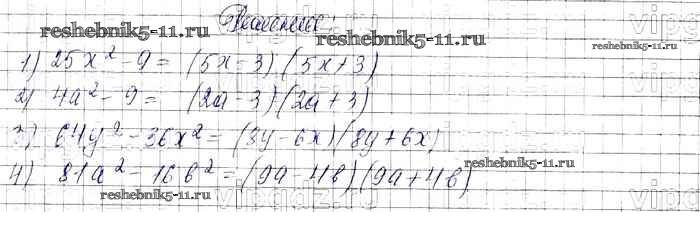 Решение:
reshebnik5-11.ru
reshebnik5-11.ru
reshebnik5-11.ru
1) 25x² - 9 = (5x - 3)(5x + 3)
2) 4a² - 9 = (2a - 3)(2a + 3)
3) 64y² - 36x² = (8y - 6x)(8y + 6x)
4) 81a² - 16b² = (9a - 4b)(9a + 4b)
reshebnik5-11.ru
reshebnik5-11.ru